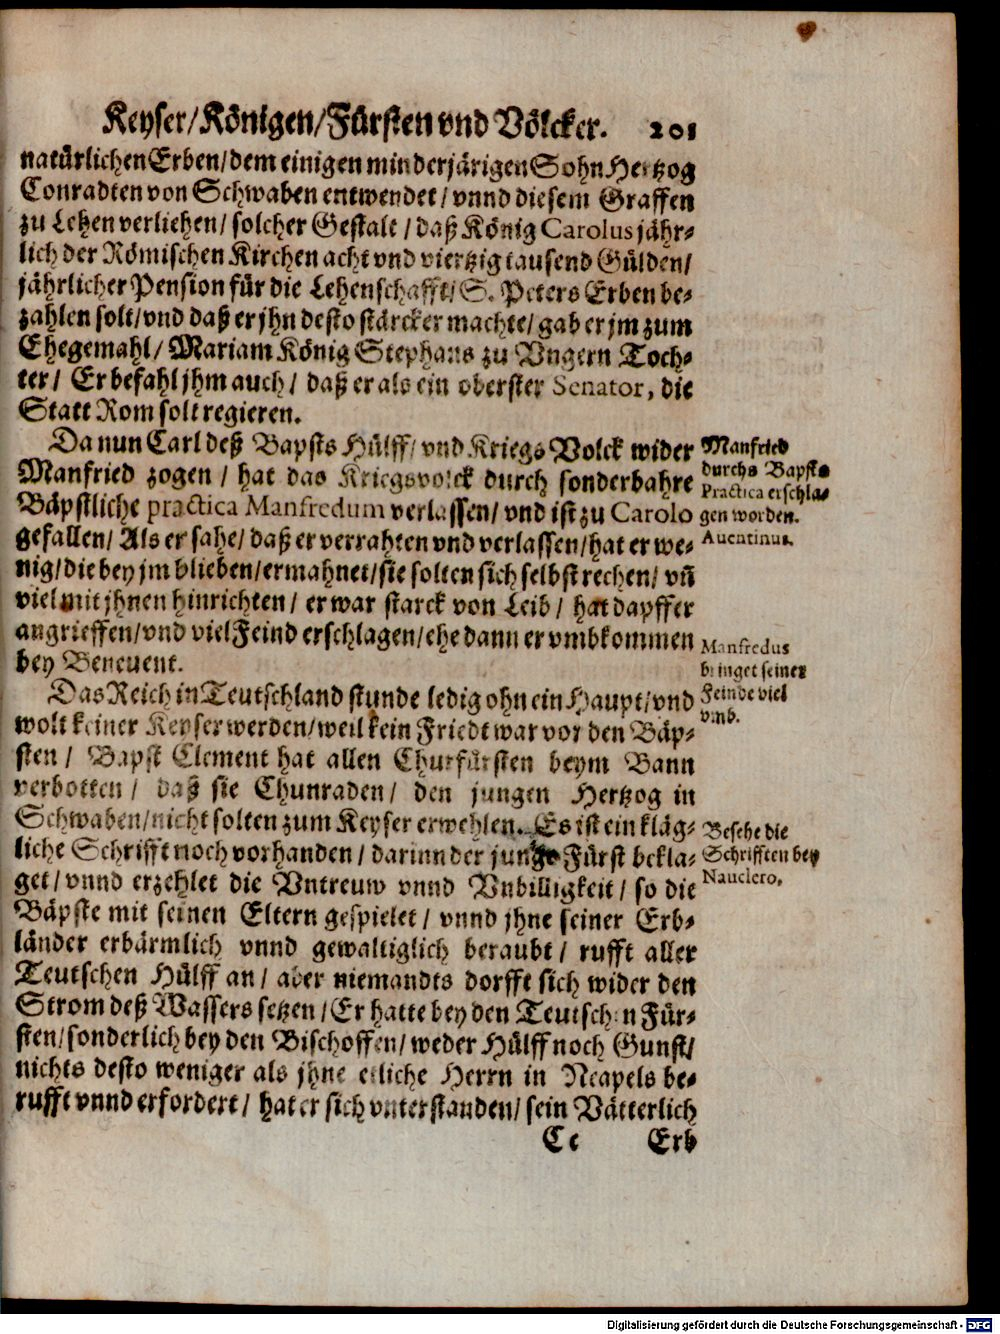 Keyser/Königen/Fürsten vnd Völcker. 201
natürlichen Erben/dem einigen minderjärigen Sohn Hertzog
Conradten von Schwaben entwendet/vnnd diesem Graffen
zu Lehen verliehen/solcher Gestalt/daß König Carolus jähr-
lich der Römischen Kirchen acht vnd viertzig tausend Gülden/
jährlicher Pension für die Lehenschafft/S. Peters Erben be-
zahlen solt/vnd daß er jhn desto stärcker machte/gab er jm zum
Ehegemahl/Mariam König Stephans zu Vngern Toch-
ter/Er befahl jhm auch/daß er als ein oberster Senator, die
Statt Rom solt regieren.
Da nun Carl deß Bapsts Hülff/vnd Kriegs Volck wider
Manfried zogen/hat das Kriegsvolck durch sonderbahre
Bäpstliche practica Manfredum verlassen/vnd ist zu Carolo
gefallen/Als er sahe/daß er verrahten vnd verlassen/hat er we-
nig/die bey jm blieben/ermahnet/sie solten sich selbst rechen/vñ
viel mit jhnen hinrichten/er war starck von Leib/hat dapffer
angrieffen/vnd viel Feind erschlagen/ehe dann er vmbkommen
bey Beneuent.
Das Reich in Teutschland stunde ledig ohn ein Haupt/vnd
wolt keiner Keyser werden/weil kein Friedt war vor den Bäp-
sten/Bapst Clement hat allen Churfürsten beym Bann
verbotten/daß sie Chunraden/den jungen Hertzog in
Schwaben/nicht solten zum Keyser erwehlen. Es ist ein kläg-
liche Schrifft noch vorhanden/darinn der junge Fürst bekla-
get/vnnd erzehlet die Vntreuw vnnd Vnbilligkeit/so die
Bäpste mit seinen Eltern gespielet/vnnd jhne seiner Erb-
länder erbärmlich vnnd gewaltiglich beraubt/rufft aller
Teutschen Hülff an/aber niemandts dorfft sich wider den
Strom deß Wassers setzen/Er hatte bey den Teutschen Für-
sten/sonderlich bey den Bischoffen/weder Hülff noch Gunst/
nichts desto weniger als jhne etliche Herrn in Neapels be-
rufft vnnd erfordert/hat er sich vnterstanden/sein Vätterlich
Cc Erb
Manfried
durchs Bapsts
Practica erschla-
gen worden.
Auentinus.
Manfredus
bringet seiner
Feinde viel
vmb.
Besehe die
Schrifften bey
Nauclero.
Digitalisierung gefördert durch die Deutsche Forschungsgemeinschaft - DFG